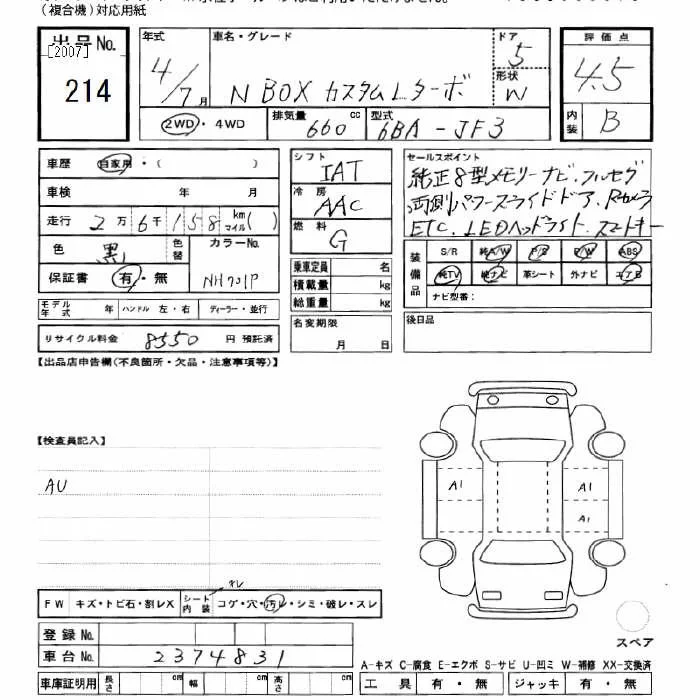 (複合機)対応用紙
出品No. 年式 車名・グレード ドア 評価点
[2007] 4/7月 N BOX カスタムLターボ 5 4.5
214 形状 W
2WD・4WD 排気量 660 cc 型式 6BA-JF3 内装 B
車歴 自家用・( ) シフト IAT セールスポイント
車検 年 月 冷房 AAC 純正8型メモリーナビ.フルセグ
走行 2万6千158 km マイル( ) 両側パワースライドドア.Rカメラ
色 黒 色替 カラーNo. 燃料 G ETC.LEDヘッドライト.スマートキー
保証書 有・無 NH731P 乗車定員 名 装備品 S/R 純A/W P/S P/W ABS
積載量 kg 純TV 純ナビ 革シート 外ナビ エアB
モデル年式 年 ハンドル 左・右 ディーラー・並行 総重量 kg ナビ型番:
リサイクル料金 8550 円 預託済 名変期限 月 日 後日品
【出品店申告欄(不良箇所・欠品・注意事項等)】
【検査員記入】
AU
A1 A1
A1
スレ
FW キズ・トビ石・割レX シート内装 コゲ・穴・汚レ・シミ・破レ・スレ
登録No.
車台No. 2374831 スペア
A-キズ C-腐食 E-エクボ S-サビ U-凹ミ W-補修 XX-交換済
車庫証明用 長さ cm 幅 cm 高さ cm 工具 有・無 ジャッキ 有・無